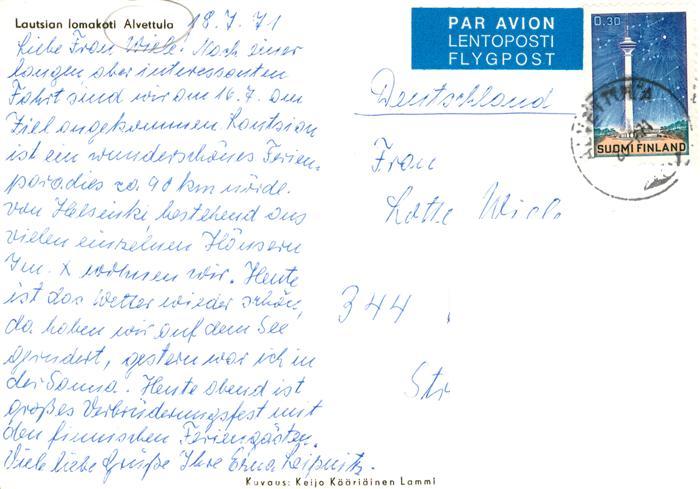 Lautsian lomakoti Alvettula 18.7.71
Liebe Frau Wiele. Nach einer
langen aber interessanten
Fahrt sind wir am 16.7. am
Ziel angekommen. Lautsian
ist ein wunderschönes Ferien-
paradies ca. 90 km nördl.
von Helsinki bestehend aus
vielen einzelnen Häusern
Im X wohnen wir. Heute
ist das Wetter wieder schön,
da haben wir auf dem See
gerudert, gestern war ich in
der Sauna. Heute abend ist
großes Verbrüderungsfest mit
den finnischen Feriengästen.
Viele liebe Grüße Ihre Erna Leipnitz.
Kuvaus: Keijo Kääriäinen Lammi
PAR AVION
LENTOPOSTI
FLYGPOST
0.30
SUOMI FINLAND
Deutschland
Frau
Lotte Wiele
344
Str